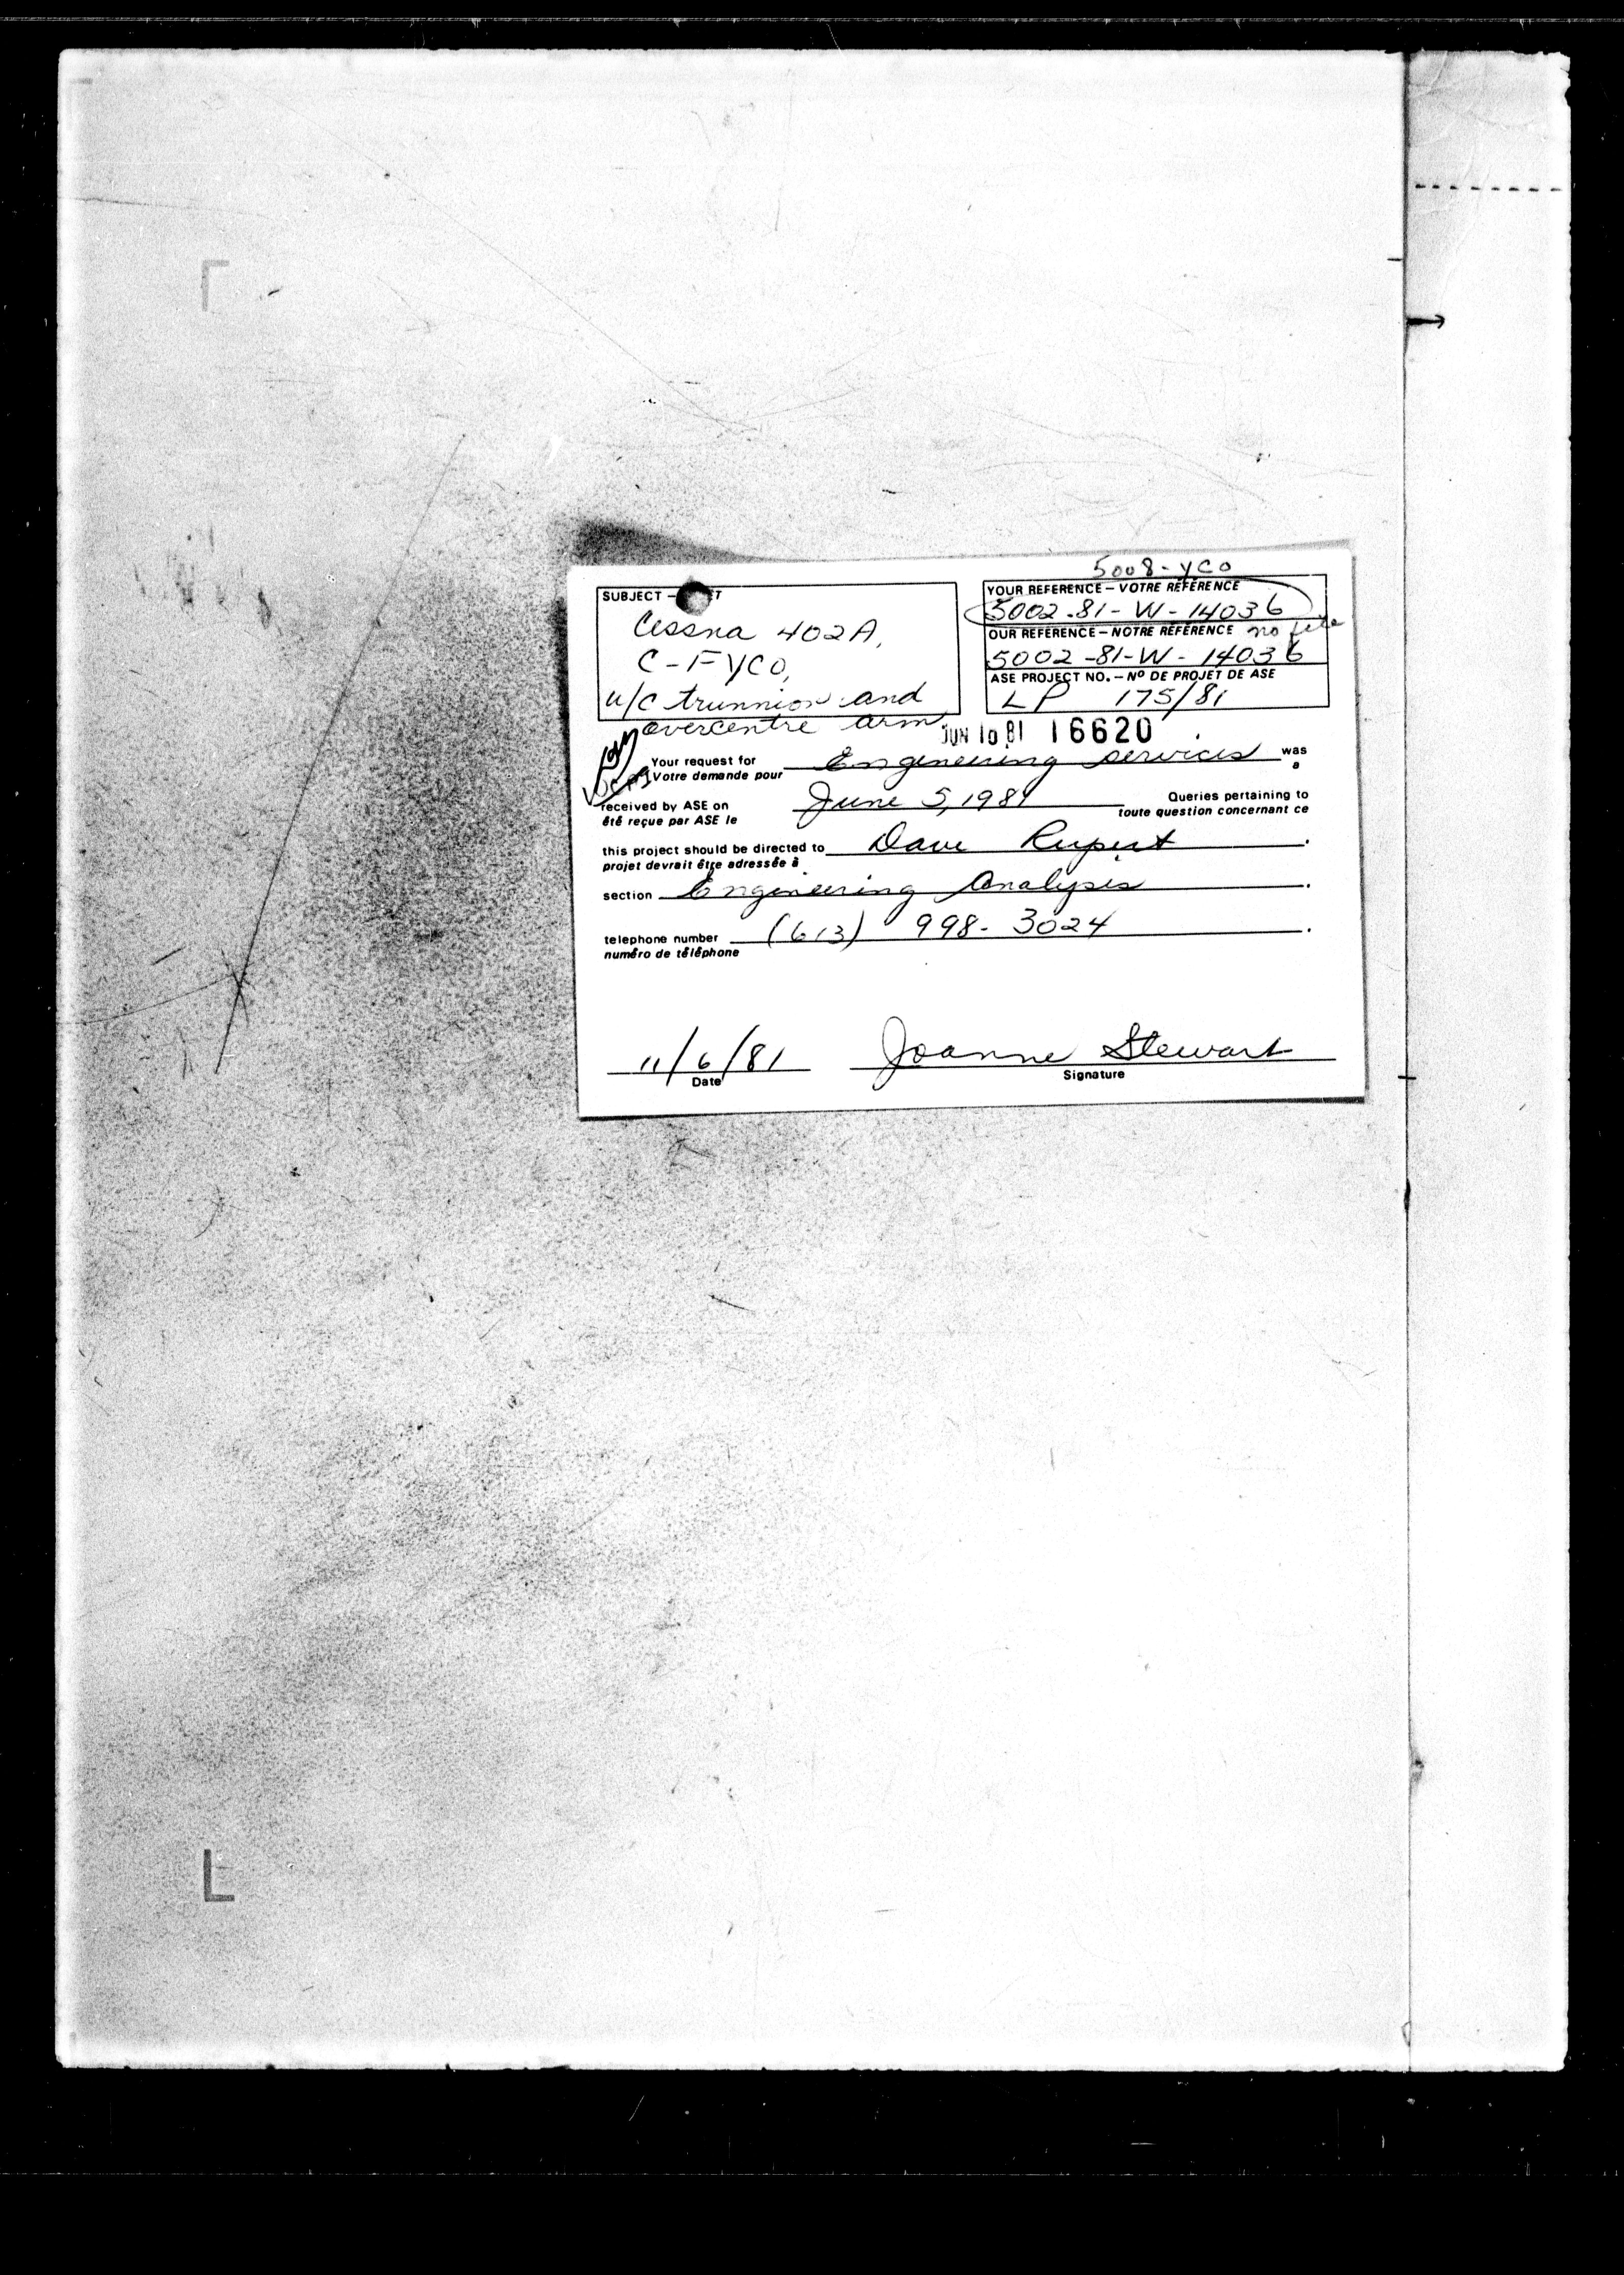 5008-YCO
SUBJECT —
Cessna 402A,
C-FYCO,
u/c trunnion and
overcentre arm
YOUR REFERENCE – VOTRE RÉFÉRENCE
5002-81-W-14036
OUR REFERENCE – NOTRE RÉFÉRENCE no file
5002-81-W-14036
ASE PROJECT NO. – Nº DE PROJET DE ASE
LP 175/81
JUN 10 81 16620
Your request for Engineering services was
Votre demande pour a
received by ASE on June 5, 1981 Queries pertaining to
été reçue par ASE le toute question concernant ce
this project should be directed to Dave Rupert.
projet devrait être adressée à
section Engineering Analysis.
telephone number (613) 998-3024.
numéro de téléphone
11/6/81 Joanne Stewart
Date Signature
L